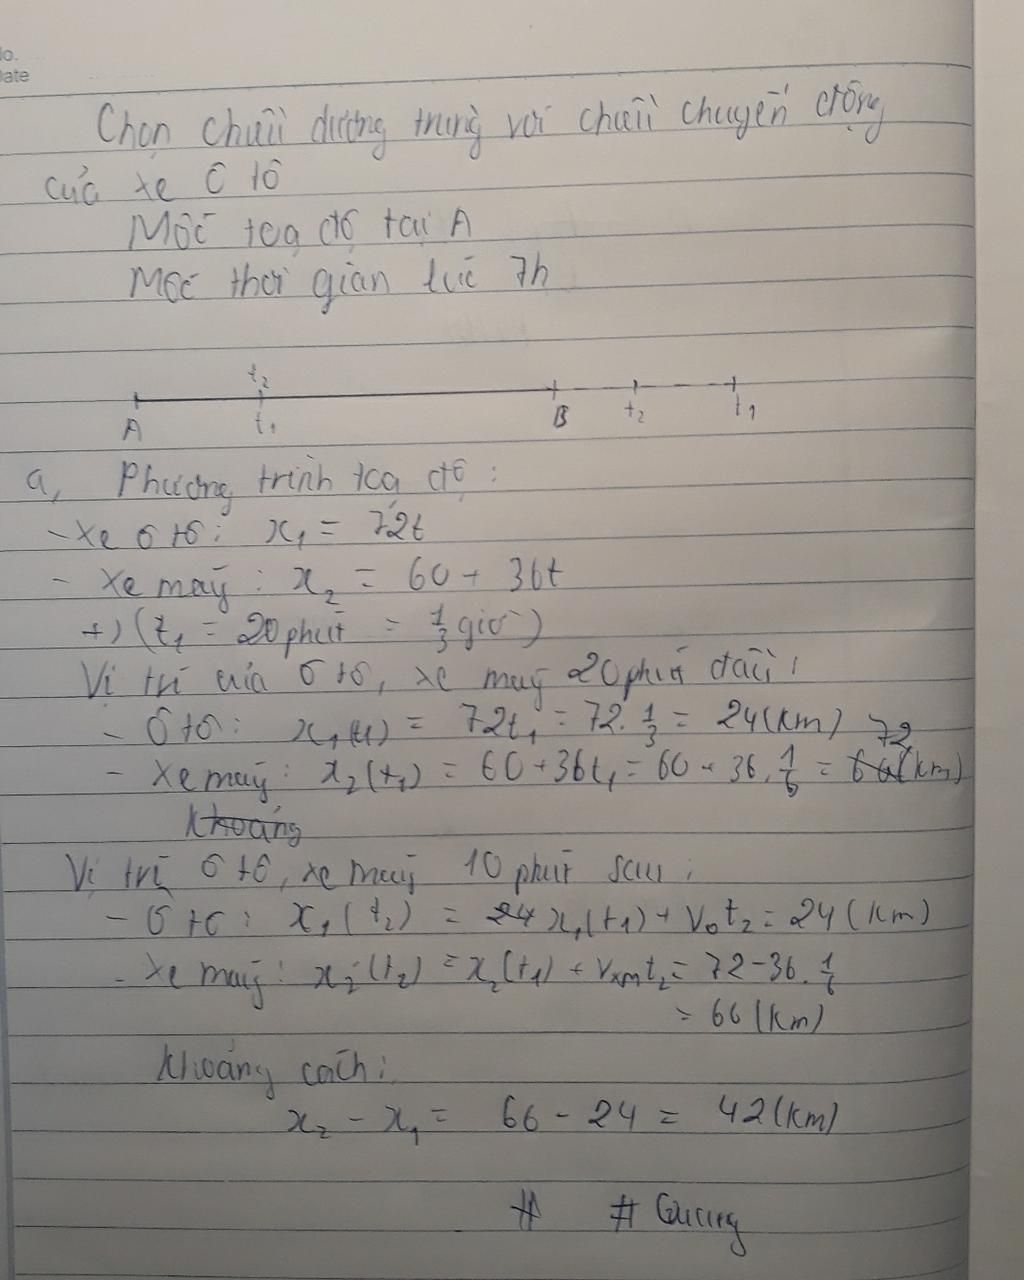 No.
Date
Chọn chiều dương trùng với chiều chuyển động
của xe ô tô
Mốc tọa độ tại A
Mốc thời gian lúc 7h
t₂
A t₁ B t₂ t₁
a, Phương trình tọa độ :
- Xe ô tô : x₁ = 72t
- Xe máy : x₂ = 60 + 36t
+) (t₁ = 20 phút = 1/3 giờ)
Vị trí của ô tô, xe máy 20 phút đầu :
- Ô tô : x₁(t₁) = 72t₁ = 72. 1/3 = 24 (km)
- Xe máy : x₂(t₁) = 60 + 36t₁ = 60 + 36. 1/6 = 72 (km)
Khoảng
Vị trí ô tô, xe máy 10 phút sau :
- Ô tô : x₁(t₂) = x₁(t₁) + v₀t₂ = 24 (km)
- Xe máy : x₂(t₂) = x₂(t₁) + vₓₘt₂ = 72 - 36. 1/6
= 66 (km)
Khoảng cách :
x₂ - x₁ = 66 - 24 = 42 (km)
# #